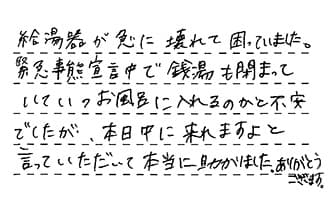 給湯器が急に壊れて困っていました。
緊急事態宣言中で銭湯も閉まって
いていつお風呂に入れるのかと不安
でしたが、本日中に来れますよと
言っていただいて本当に助かりました。ありがとう
ございます。